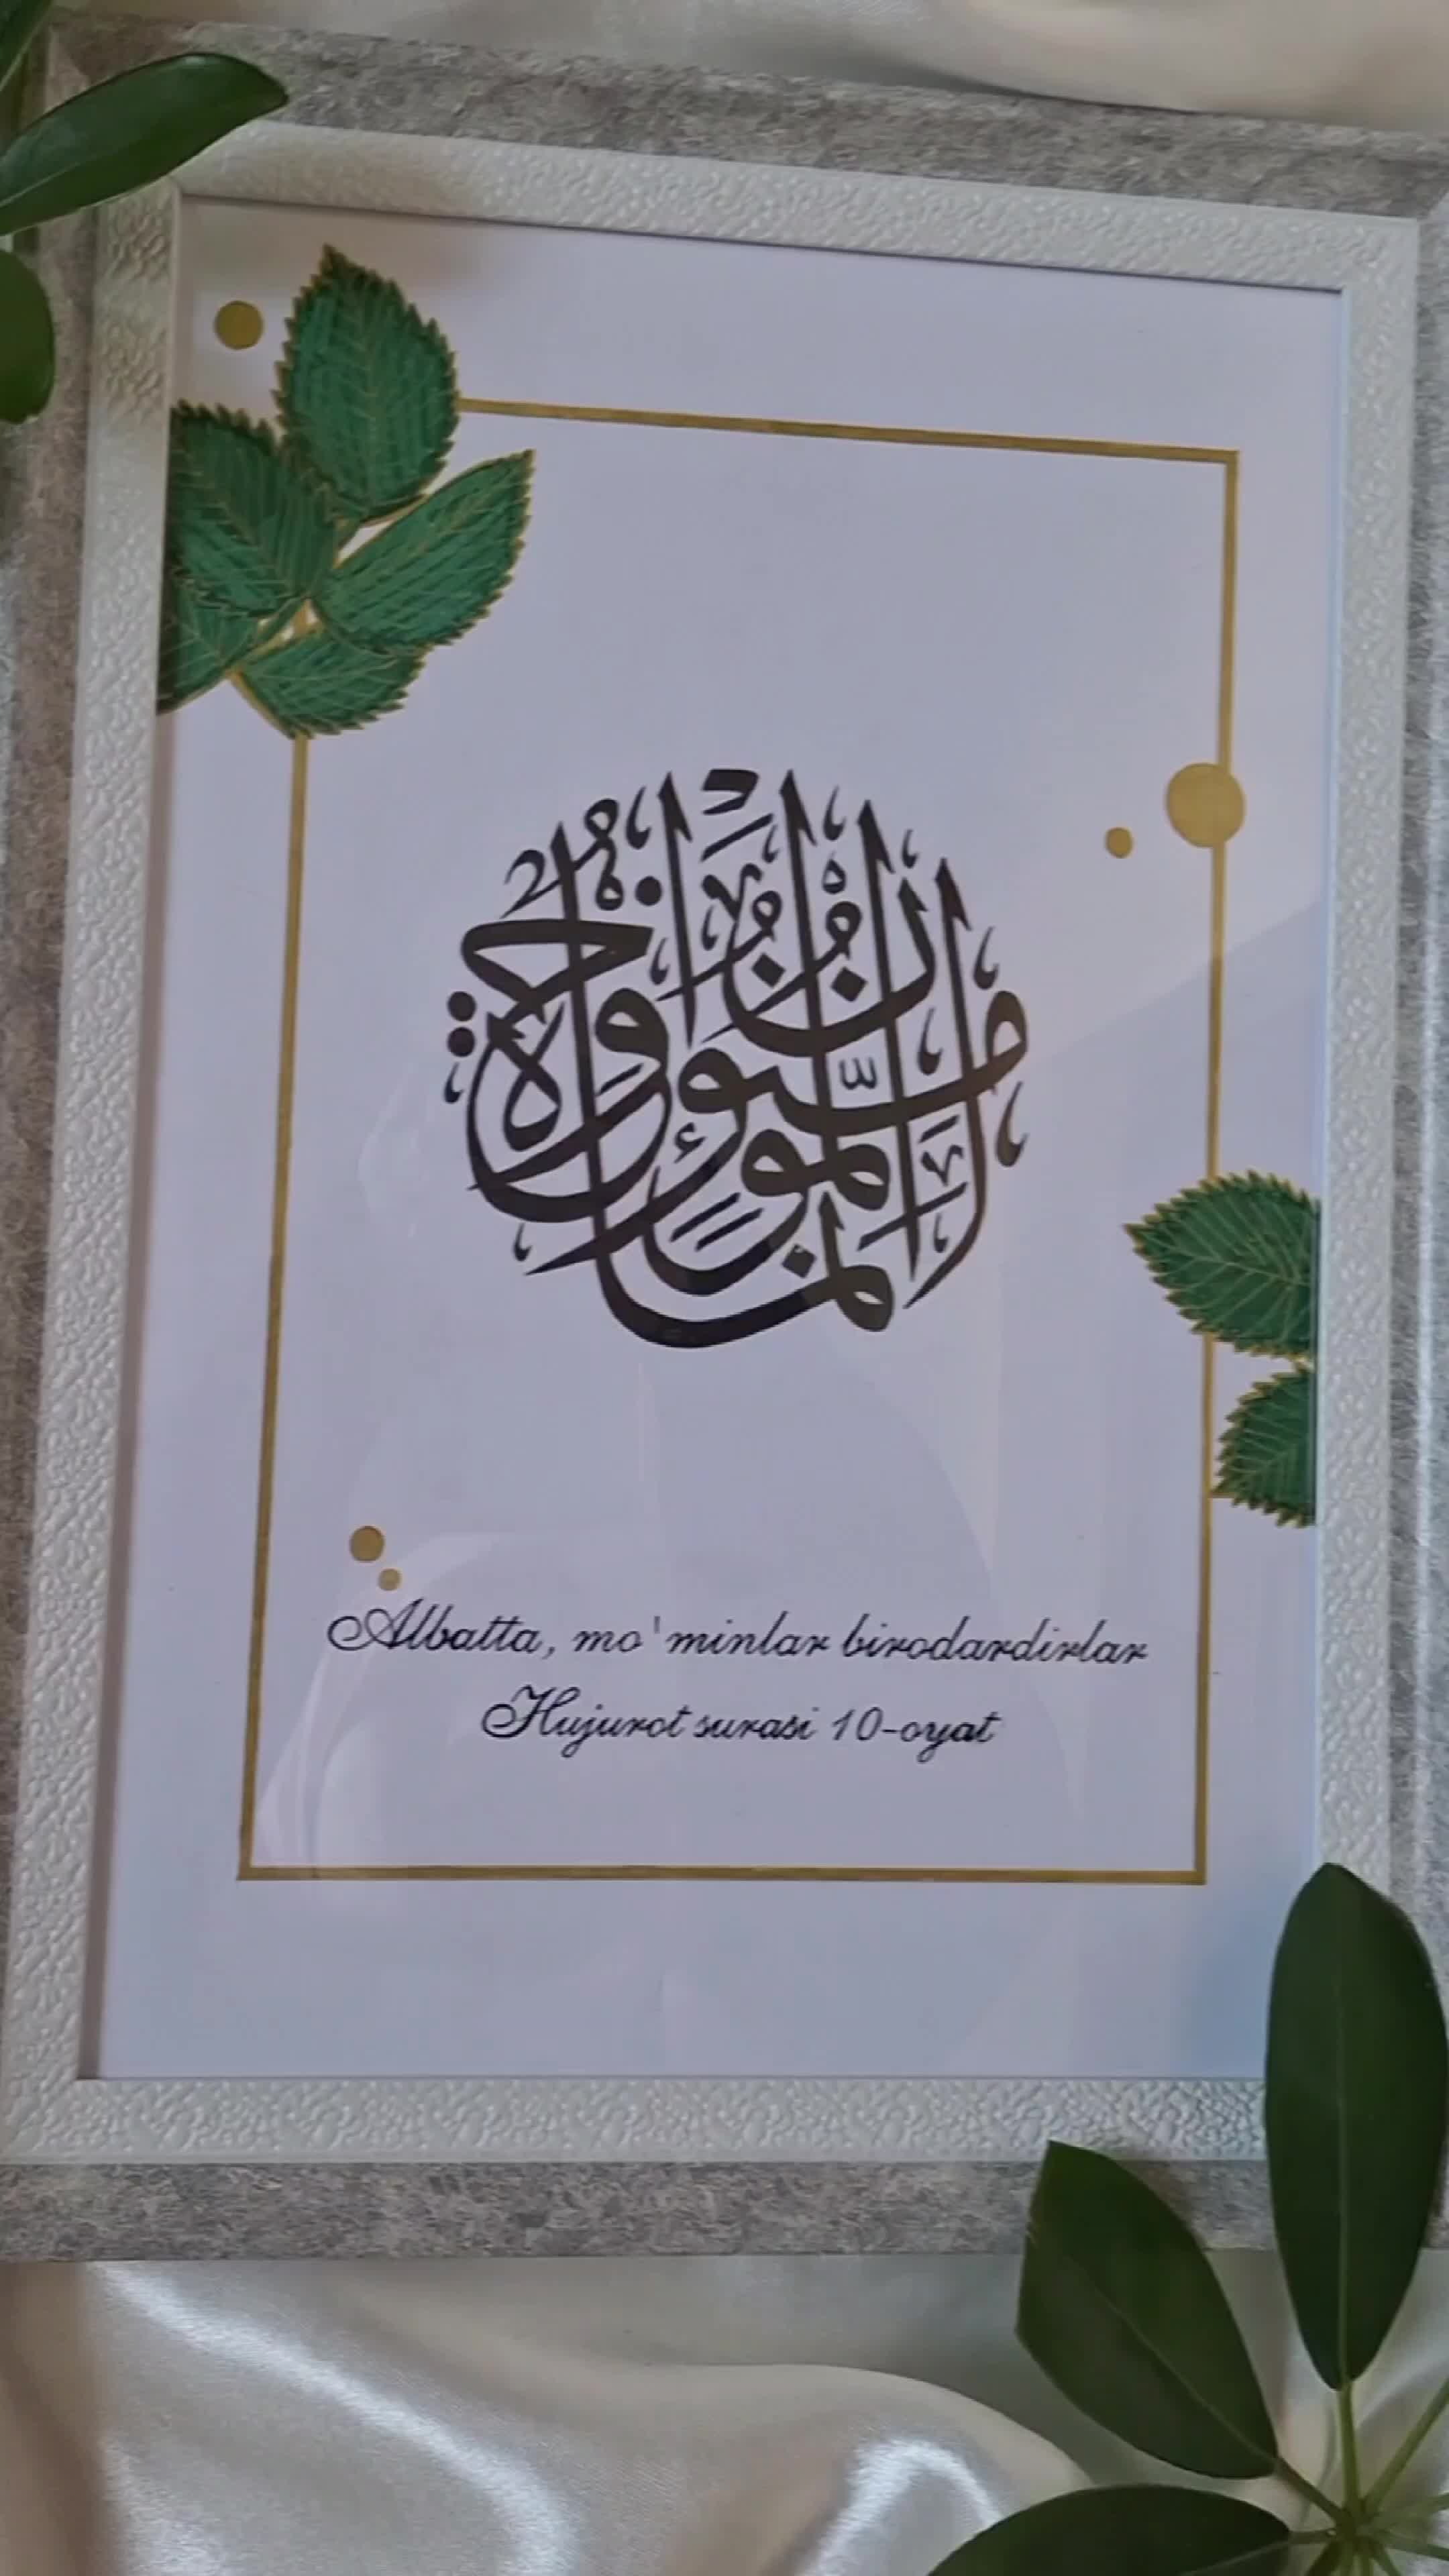 إنما المؤمنون إخوة
Albatta, mo'minlar birodardirlar
Hujurot surasi 10-oyat